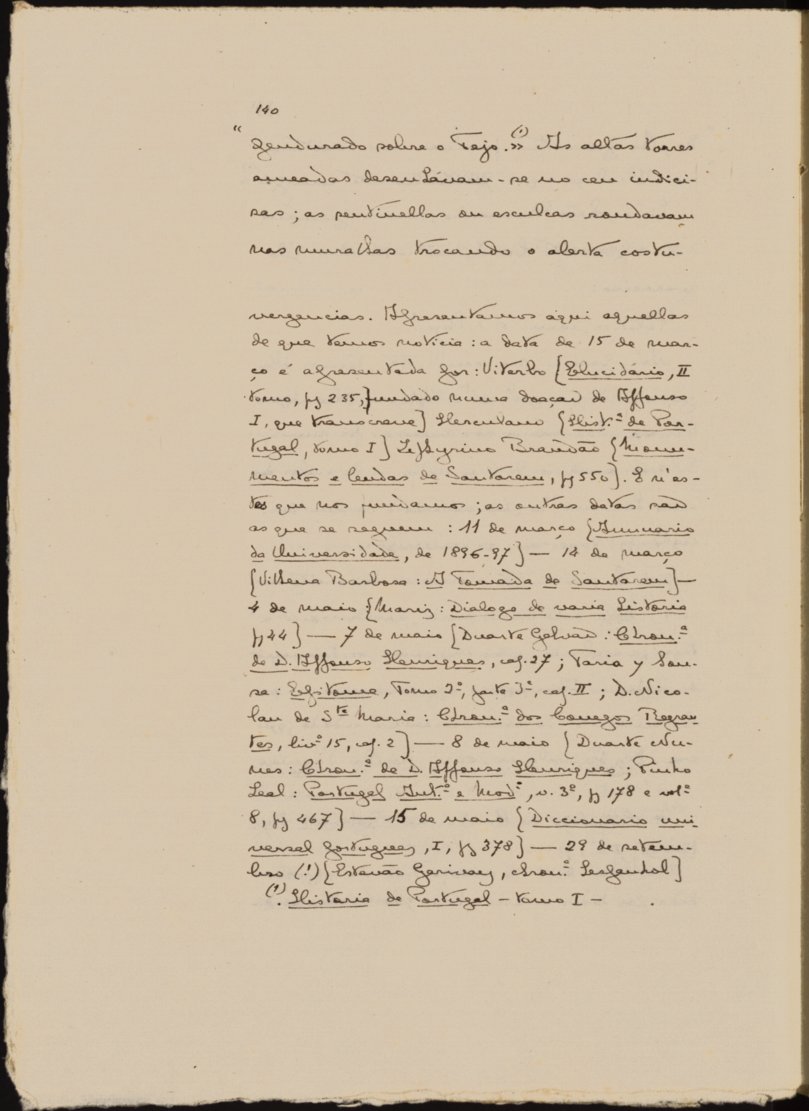 140
"pendurado sobre o Tejo.(1)» As altas torres
ameadas desenhávam-se no ceu indici-
sas; as sentinellas ou esculcas rondavam
nas muralhas trocando o alerta costu-
vergencias. Apresentamos aqui aquellas
de que temos noticia: a data de 15 de mar-
ço é apresentada por: Viterbo [Elucidário, II
tomo, pg 235, fundado numa doação de Affonso
I, que transcreve] Herculano [Hist.ª de Por-
tugal, tomo I] Zephyrino Brandão [Monu-
mentos e lendas de Santarem, pg 550]. E n'es-
tes que nos fundamos; as outras datas são
as que se seguem: 11 de março [Annuario
da Universidade, de 1896-97] — 14 de março
[Vilhena Barbosa: A Tomada de Santarem] —
4 de maio [Mariz: Dialogo de varia historia
pg 44] — 7 de maio [Duarte Galvão: Chron.ª
de D. Affonso Henriques, cap. 27; Faria y Sou-
sa: Epitome, Tomo 2º, parte 3ª, cap. II; D. Nico-
lau de Sta Maria: Chron.ª dos Conegos Regran-
tes, livº 15, cap. 2] — 8 de maio [Duarte Nu-
nes: Chron.ª de D. Affonso Henriques; Pinho
Leal: Portugal Ant.º e Mod.º, v. 3º, pg 178 e volº
8, pg 467] — 15 de maio [Diccionario uni-
versal portuguez, I, pg 378] — 29 de setem-
bro (!) [Estevão Garivay, chron.ª hespanhol]
(1). Historia de Portugal - tomo I -